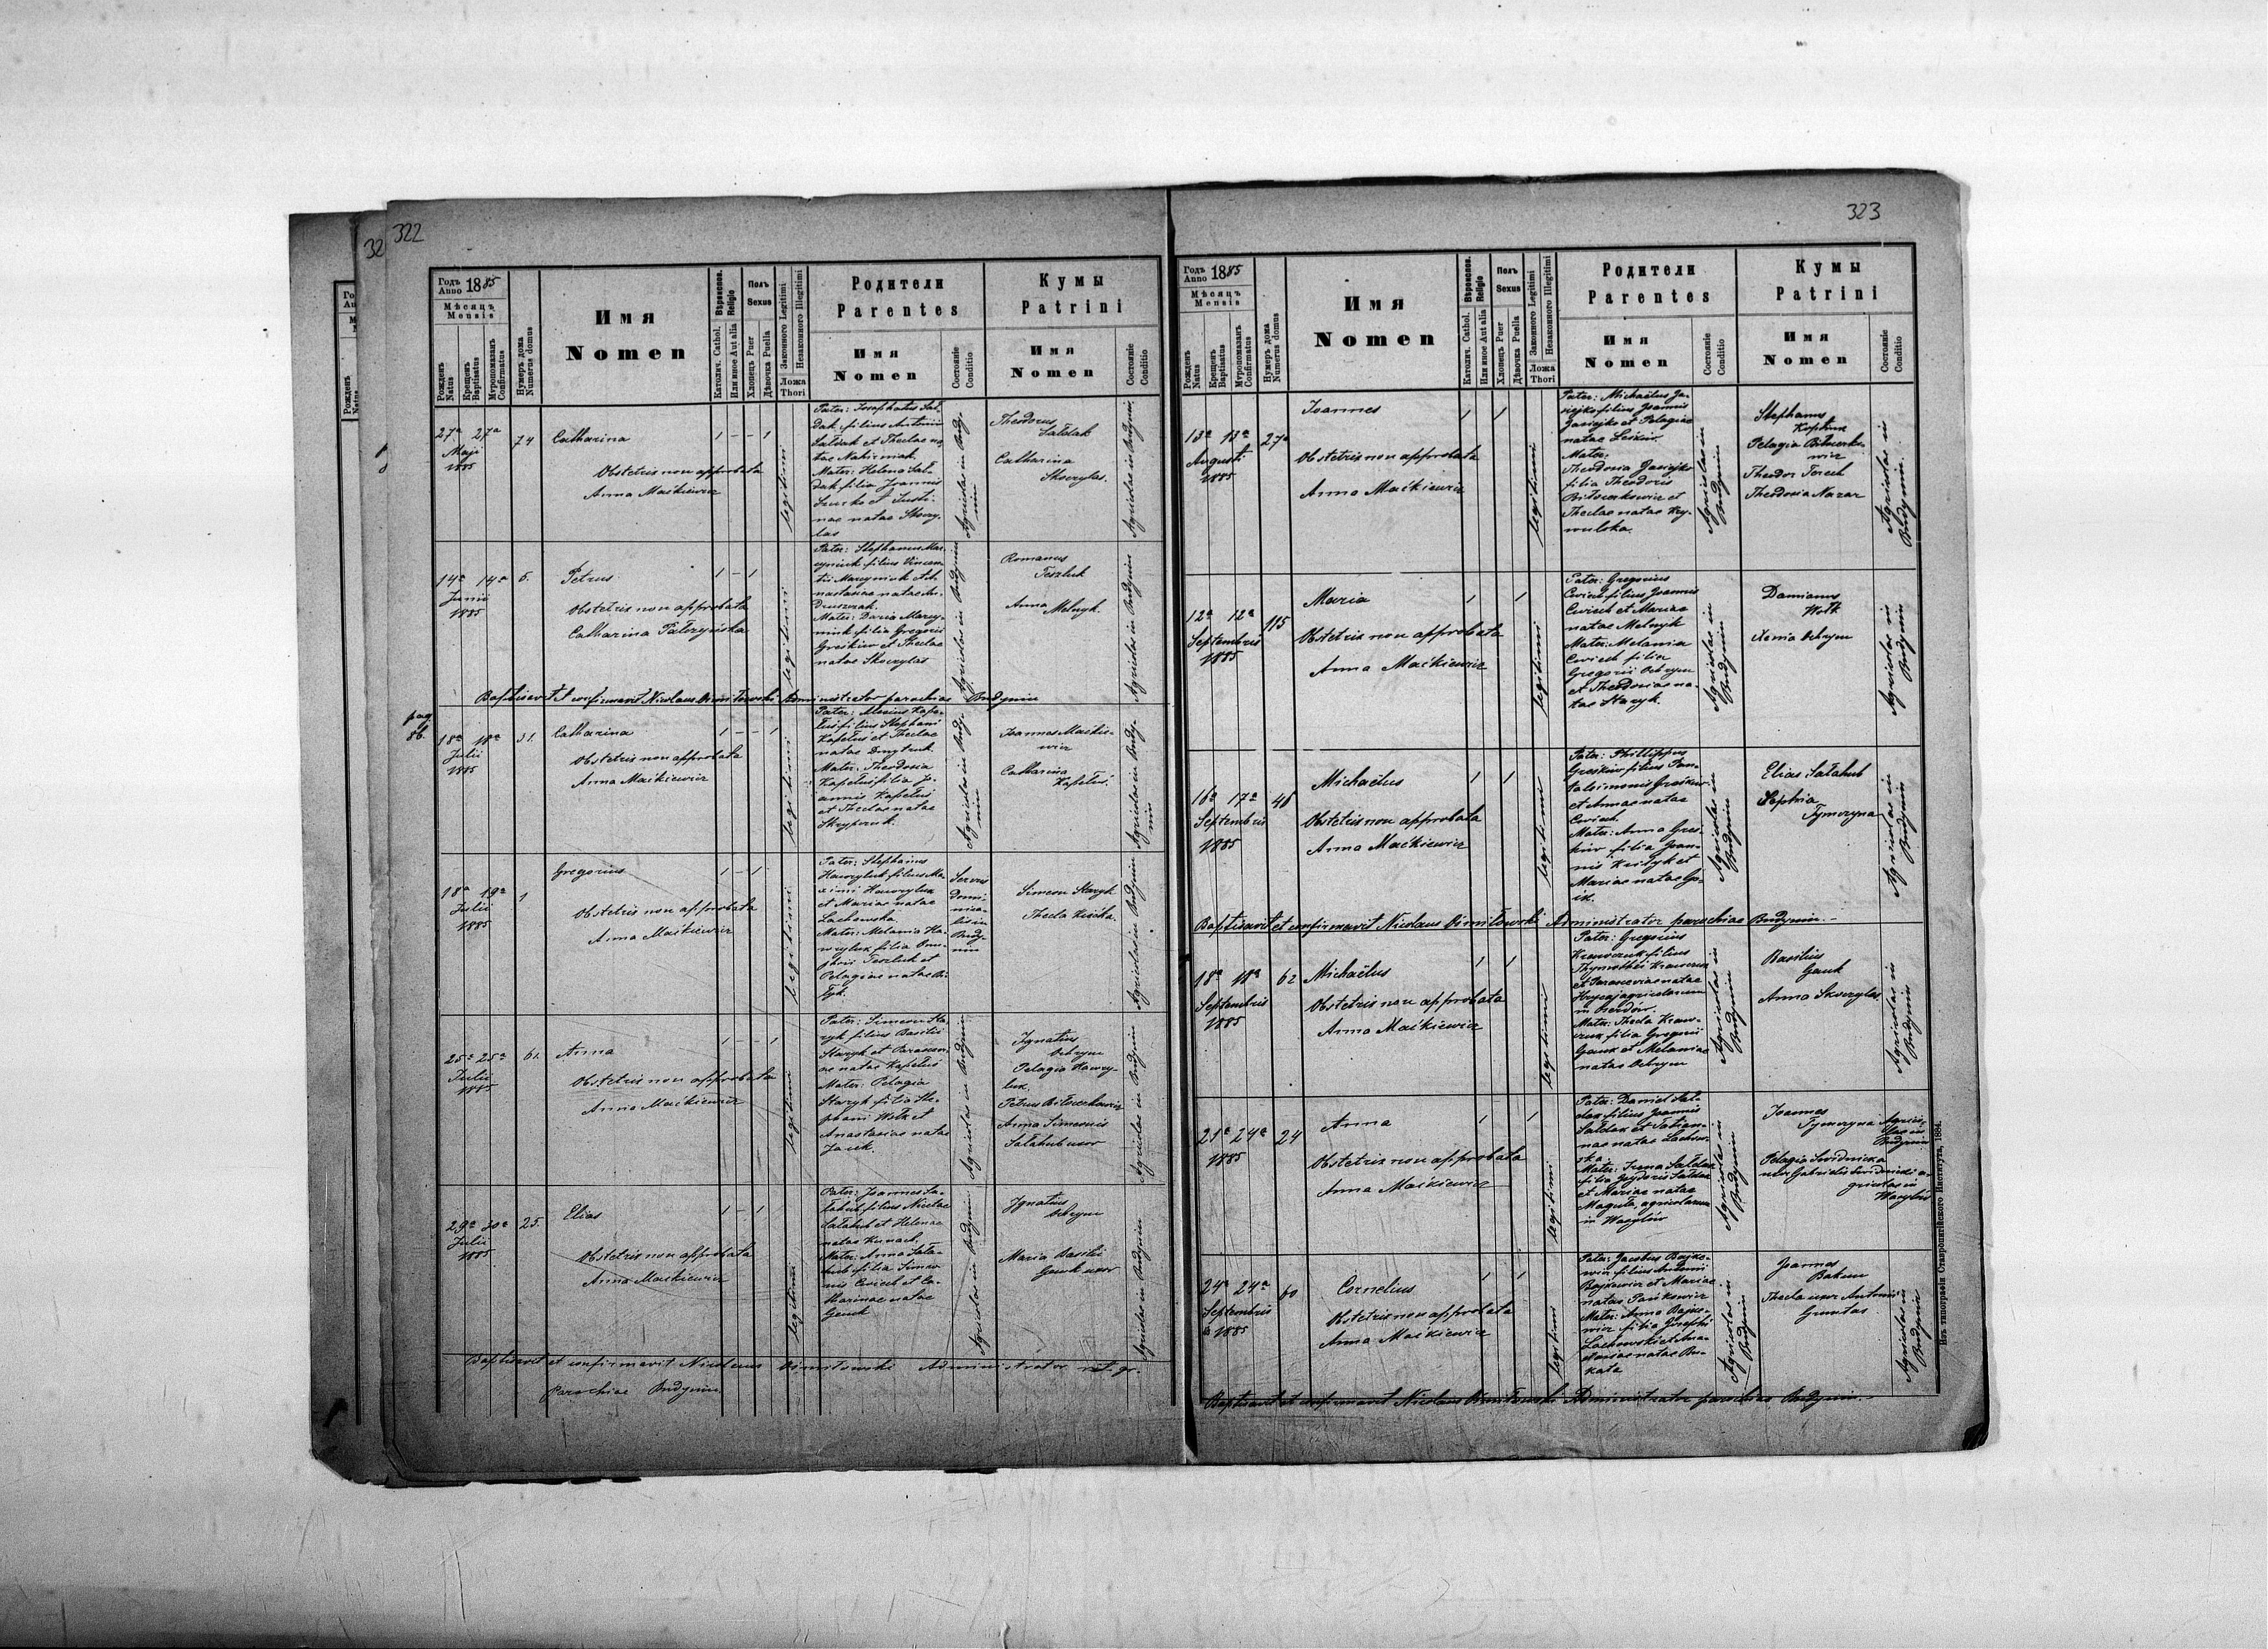 322
Годъ Anno 1885
Мѣсяцъ Mensis
Рожденъ Natus
Крещенъ Baptisatus
Мѵропомазанъ Confirmatus
Нумеръ дома Numerus domus
Имя
Nomen
Вѣроиспов. Religio
Католич. Cathol.
Или иное Aut alia
Полъ Sexus
Хлопецъ Puer
Дѣвочка Puella
Законного Legitimi
Незаконного Illegitimi
Ложа Thori
Родители
Parentes
Имя
Nomen
Состояніе Conditio
Кумы
Patrini
Имя
Nomen
Состояніе Conditio
27a 27a
Maji
1885
74
Catharina
Obstetrix non approbata
Anna Maćkiewicz
legitimi
Pater: Josephatus Sał-
dak filius Antonii
Sałdak et Theclae na-
tae
Mater: Helena Sał-
dak filia Joannis
et Justi-
nae natae Skoczy-
las
Agricolae in Budy-
nin
Theodorus
Sałdak
Catharina
Skoczylas.
Agricolae in Budynin
14a 14a
Junii
1885
5.
Petrus
Obstetrix non approbata
Catharina Pałczyńska
legitimi
Pater: Stephanus Mar-
cyniuk filius Vincen-
tii Marcyniuk et A-
nastasiae natae An-
druszczak.
Mater: Daria Marcy-
niuk filia Gregorii
Greśkiw et Theclae
natae Skoczylas
Agricolae in Budynin
Romanus
Teszluk
Anna
Melnyk.
Agricolae in Budynin
Baptisavit et confirmavit Nicolaus Administrator parochiae Budynin
pag.
86.
18a 18a
Julii
1885
31.
Catharina
Obstetrix non approbata
Anna Maćkiewicz
legitimi
Pater: Alexius Kape-
luś filius Stephani
Kapeluś et Theclae
natae Dmytruk.
Mater: Theodosia
Kapeluś filia Jo-
annis Kapeluś
et Theclae natae
Skrypczuk.
Agricolae in Budy-
nin
Joannes Maćkie-
wicz
Catharina
Kapeluś.
Agricolae in Budy-
nin
18a 19a
Julii
1885
1
Gregorius
Obstetrix non approbata
Anna Maćkiewicz
legitimi
Pater: Stephanus
Hawryluk filius Ma-
ximi Hawryluk
et Mariae natae
Lachowska
Mater: Melania Ha-
wryluk filia Onu-
phrii Teszluk et
Pelagiae natae
Servus
domi-
nica-
lis in
Budy-
nin
Simeon Staryk
Thecla
Agricolae in Budynin
25a 25a
Julii
1885
61.
Anna
Obstetrix non approbata
Anna Maćkiewicz
legitimi
Pater: Simeon Sta-
ryk filius Basilii
Staryk et Parascevi-
ae natae Kapeluś
Mater: Pelagia
Staryk filia Ste-
phani Wołk et
Anastasiae natae
Agricolae in Budynin
Ignatius
Ochrym
Pelagia Hawry-
luk,
Petrus
Anna Simeonis
Sałahub uxor
Agricolae in Budynin
29a 30a
Julii
1885.
25.
Elias
Obstetrix non approbata
Anna Maćkiewicz
legitimi
Pater: Joannes Sa-
łahub filius Nicetae
Sałahub et Helenae
natae Kunach.
Mater: Anna Sała-
hub filia Simeo-
nis Cwiech et Ca-
tharinae natae
Gauk
Agricolae in Budynin
Ignatius
Ochrym
Maria Basilii
Gauk uxor
Agricolae in Budynin
Baptisavit et confirmavit Nicolaus Administrator rit. gr.
Parochiae Budynin.
323
Годъ Anno 1885
Мѣсяцъ Mensis
Рожденъ Natus
Крещенъ Baptisatus
Мѵропомазанъ Confirmatus
Нумеръ дома Numerus domus
Имя
Nomen
Вѣроиспов. Religio
Католич. Cathol.
Или иное Aut alia
Полъ Sexus
Хлопецъ Puer
Дѣвочка Puella
Законного Legitimi
Незаконного Illegitimi
Ложа Thori
Родители
Parentes
Имя
Nomen
Состояніе Conditio
Кумы
Patrini
Имя
Nomen
Состояніе Conditio
13a 13a
Augusti
1885
Joannes
Obstetrix non approbata
Anna Maćkiewicz
legitimi
Pater: Michaëlus
filius Joannis
et Pelagiae
natae
Mater:
Theodosia
filia Theodoris
et
Theclae natae Kry-
wulska.
Agricolae in
Budynin
Stephanus
Pelagia
Theodor
Theodosia Nazar
Agricolae in
Budynin.
12a 12a
Septembris
1885
115
Maria
Obstetrix non approbata
Anna Maćkiewicz
legitimi
Pater: Gregorius
Cwiech filius Joannis
Cwiech et Mariae
natae Melnyk
Mater: Melania
Cwiech filia
Gregorii Ochrym
et Theodosiae na-
tae Staryk.
Agricolae in
Budynin
Damianus
Wołk
Xenia Ochrym
Agricolae in
Budynin
16a 17a
Septembris
1885
46
Michaëlus
Obstetrix non approbata
Anna Maćkiewicz
legitimi
Pater: Philippus
Greśkiw filius Pan-
taleimonis Greśkiw
et Annae natae
Cwiech.
Mater: Anna Greś-
kiw filia Joan-
nis et
Mariae natae
Agricolae in
Budynin
Elias Sałahub
Sophia
Tymczyna
Agricolae in
Budynin
Baptisavit et confirmavit Nicolaus Administrator parochiae Budynin.
18a 18a
Septembris
1885
62
Michaëlus
Obstetrix non approbata
Anna Maćkiewicz
legitimi
Pater: Gregorius
Krawczuk filius
Thymothei Krawczuk
et Parasceviae natae
agricolarum
in
Mater: Thecla Kraw-
czuk filia Gregorii
Gauk et Melaniae
natae Ochrym
Agricolae in
Budynin
Basilius
Gauk
Anna Skoczylas
Agricolae in
Budynin
21a 24a
1885
24
Anna
Obstetrix non approbata
Anna Maćkiewicz
legitimi
Pater: Daniel Sał-
dak filius Joannis
Sałdak et Tatian-
nae natae Lachow-
ska.
Mater: Irena Sałdak
filia Sałdak
et Mariae natae
Maguta, agricolarum
in Wasylów
Agricolae in
Budynin
Joannes
Tymczyna
Agrico-
lae in
Budynin
Pelagia Swidnicka
uxor Gabrielis Swidnicki a-
gricolae in
Wasylów
24a 24a
Septembris
1885
60
Cornelius
Obstetrix non approbata
Anna Maćkiewicz
legitimi
Pater: Jacobus Bajko-
wicz filius Antonii
Bajkowicz et Mariae
natae Pańkowicz
Mater: Anna Bajko-
wicz filia Josephi
Lachowski et Ana-
stasiae natae Bu-
kała
Agricolae in
Budynin
Joannes
Bakun
Thecla uxor Antonii
Agricolae in
Budynin
Baptisavit et confirmavit Nicolaus Administrator parochiae Budynin.
Изъ типографіи Ставропигійского Института, 1884.